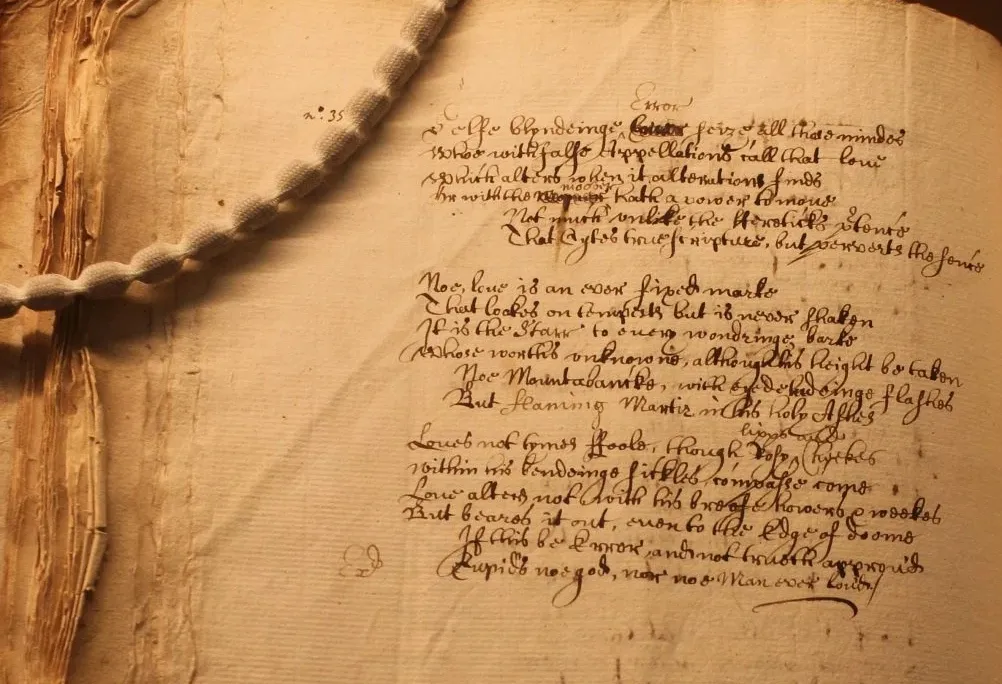 Error
n°. 35
Selfe blyndeinge seize all those mindes
Whoe with false Appellations call that love
Which alters when it alterations finds
moover
Or with the hath a power to move
Not much unlike the Hereticks p̱tence
That Cytes true scripture, but perverts the sence
Noe, love is an ever fixed marke
That lookes on tempests but is never shaken
It is the Starr to every wondringe barke
Whose worths unknowne, although his height be taken
Noe Mountabancke, with eyedeludeinge flashes
But flaming Martir in his holy Ashes
lipps and
Loves not tymes ffoole, though Rosye Cheekes
within his bendeinge sickles compasse come
Love alters not with his breefe howers & weekes
But beares it out, even to the Edge of doome
If this be Error and not trueth approv'd
Cupids noe god, nor noe Man ever lov'd